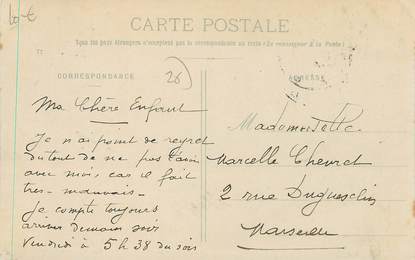 60 €
CARTE POSTALE
Tous les pays étrangers n'acceptent pas la correspondance au recto (Se renseigner à la Poste)
CORRESPONDANCE
26
ADRESSE
Ma Chère Enfant
Je n ai point de regret
du tout de ne pas t'avoir
avec moi, car il fait
très mauvais
Je compte toujours
arriver demain soir
Vendredi à 5 h 38 du soir
Mademoiselle
Marcelle Chevret
2 rue Duguesclin
Marseille